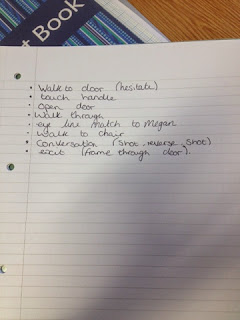 t Book
• Walk to door (hesitate)
• touch handle
• open door
• Walk through
• eye line match to Megan
• walk to chair
• Conversation (shot, reverse, shot)
• exit (frame through door).